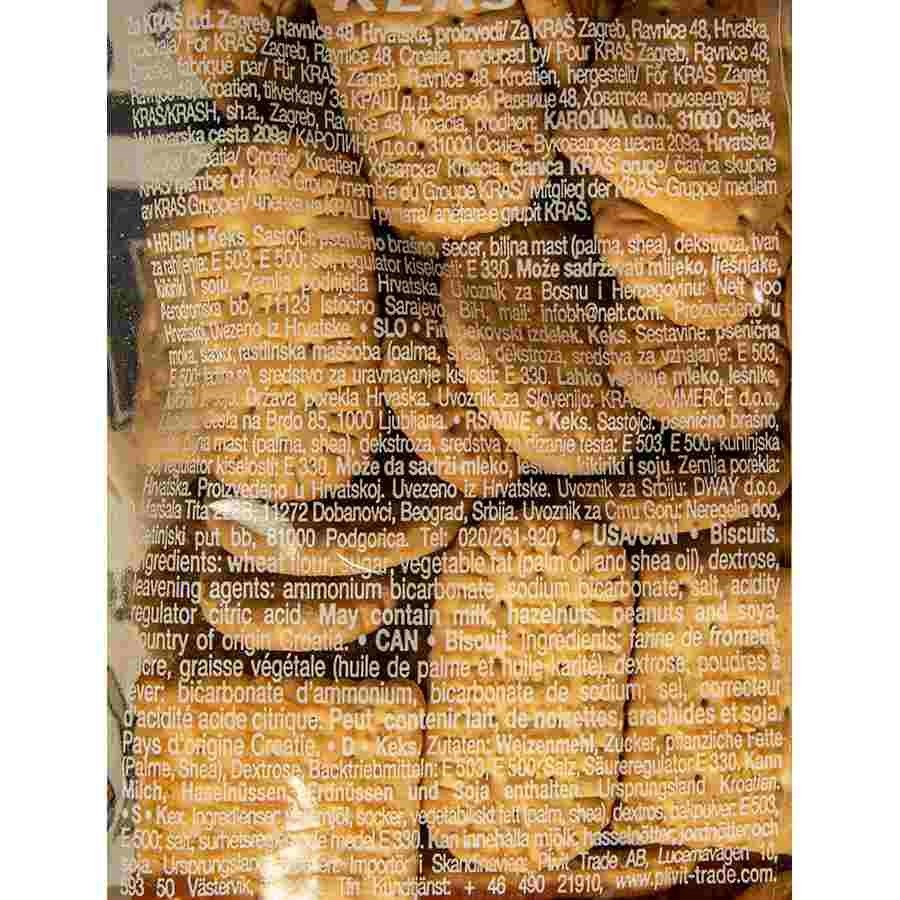 KRAŠ
Za KRAŠ d.d. Zagreb, Ravnice 48, Hrvatska, proizvodi/ Za KRAŠ Zagreb, Ravnice 48, Hrvaška,
proizvaja/ For KRAŠ Zagreb, Ravnice 48, Croatia, produced by/ Pour KRAŠ Zagreb, Ravnice 48,
Croatie, fabriqué par/ Für KRAŠ Zagreb, Ravnice 48, Kroatien, hergestellt/ För KRAŠ Zagreb,
Ravnice 48, Kroatien, tillverkare/ За КРАШ д.д. Загреб, Равнице 48, Хрватска, произведува/ Për
KRAŠ/KRASH, sh.a., Zagreb, Ravnice 48, Kroacia, prodhon: KAROLINA d.o.o., 31000 Osijek,
Vukovarska cesta 209a/ КАРОЛИНА д.о.о., 31000 Осијек, Вуковарска цеста 209a, Hrvatska/
Croatia/ Croatie/ Kroatien/ Хрватска/ Kroacia, članica KRAŠ grupe/ članica skupine
KRAŠ/ member of KRAŠ Group/ membre du Groupe KRAŠ/ Mitglied der KRAŠ- Gruppe/ medlem
av KRAŠ Gruppen/ членка на КРАШ групата/ anëtare e grupit KRAŠ.
• HR/BIH • Keks. Sastojci: pšenično brašno, šećer, biljna mast (palma, shea), dekstroza, tvari
za rahljenje: E 503, E 500; sol, regulator kiselosti: E 330. Može sadržavati mlijeko, lješnjake,
kikiriki i soju. Zemlja podrijetla Hrvatska. Uvoznik za Bosnu i Hercegovinu: Nelt doo
Aerodromska bb, 71123 Istočno Sarajevo, BiH, mail: infobh@nelt.com. Proizvedeno u
Hrvatskoj. Uvezeno iz Hrvatske. • SLO • Fini pekovski izdelek. Keks. Sestavine: pšenična
moka, sladkor, rastlinska maščoba (palma, shea), dekstroza, sredstva za vzhajanje: E 503,
E 500; jedilna sol, sredstvo za uravnavanje kislosti: E 330. Lahko vsebuje mleko, lešnike,
Država porekla Hrvaška. Uvoznik za Slovenijo: KRAŠ COMMERCE d.o.o.,
cesta na Brdo 85, 1000 Ljubljana. • RS/MNE • Keks. Sastojci: pšenično brašno,
mast (palma, shea), dekstroza, sredstva za dizanje testa: E 503, E 500; kuhinjska
so, regulator kiselosti: E 330. Može da sadrži mleko, lešnik, kikiriki i soju. Zemlja porekla:
Hrvatska. Proizvedeno u Hrvatskoj. Uvezeno iz Hrvatske. Uvoznik za Srbiju: DWAY d.o.o.
Maršala Tita B, 11272 Dobanovci, Beograd, Srbija. Uvoznik za Crnu Goru: Neregelia doo,
Cetinjski put bb, 81000 Podgorica. Tel: 020/261-920. • USA/CAN • Biscuits.
Ingredients: wheat flour, sugar, vegetable fat (palm oil and shea oil), dextrose,
leavening agents: ammonium bicarbonate, sodium bicarbonate; salt, acidity
regulator citric acid. May contain milk, hazelnuts, peanuts and soya.
Country of origin Croatia. • CAN • Biscuit. Ingrédients: farine de froment,
sucre, graisse végétale (huile de palme et huile karité), dextrose, poudres à
lever: bicarbonate d'ammonium, bicarbonate de sodium; sel, correcteur
d'acidité acide citrique. Peut contenir lait, de noisettes, arachides et soja.
Pays d'origine Croatie. • D • Keks. Zutaten: Weizenmehl, Zucker, pflanzliche Fette
(Palme, Shea), Dextrose, Backtriebmitteln: E 503, E 500; Salz, Säureregulator E 330. Kann
Milch, Haselnüssen, Erdnüssen und Soja enthalten. Ursprungsland Kroatien.
• S • Kex. Ingredienser: vetemjöl, socker, vegetabiliskt fett (palm, shea), dextros, bakpulver: E 503,
E 500; salt, surhetsreglerande medel E 330. Kan innehålla mjölk, hasselnötter, jordnötter och
soja. Ursprungsland Importör i Skandinavien: Plivit Trade AB, Lucernavägen 10,
593 50 Västervik, Tfn Kundtjänst: + 46 490 21910, www.plivit-trade.com.